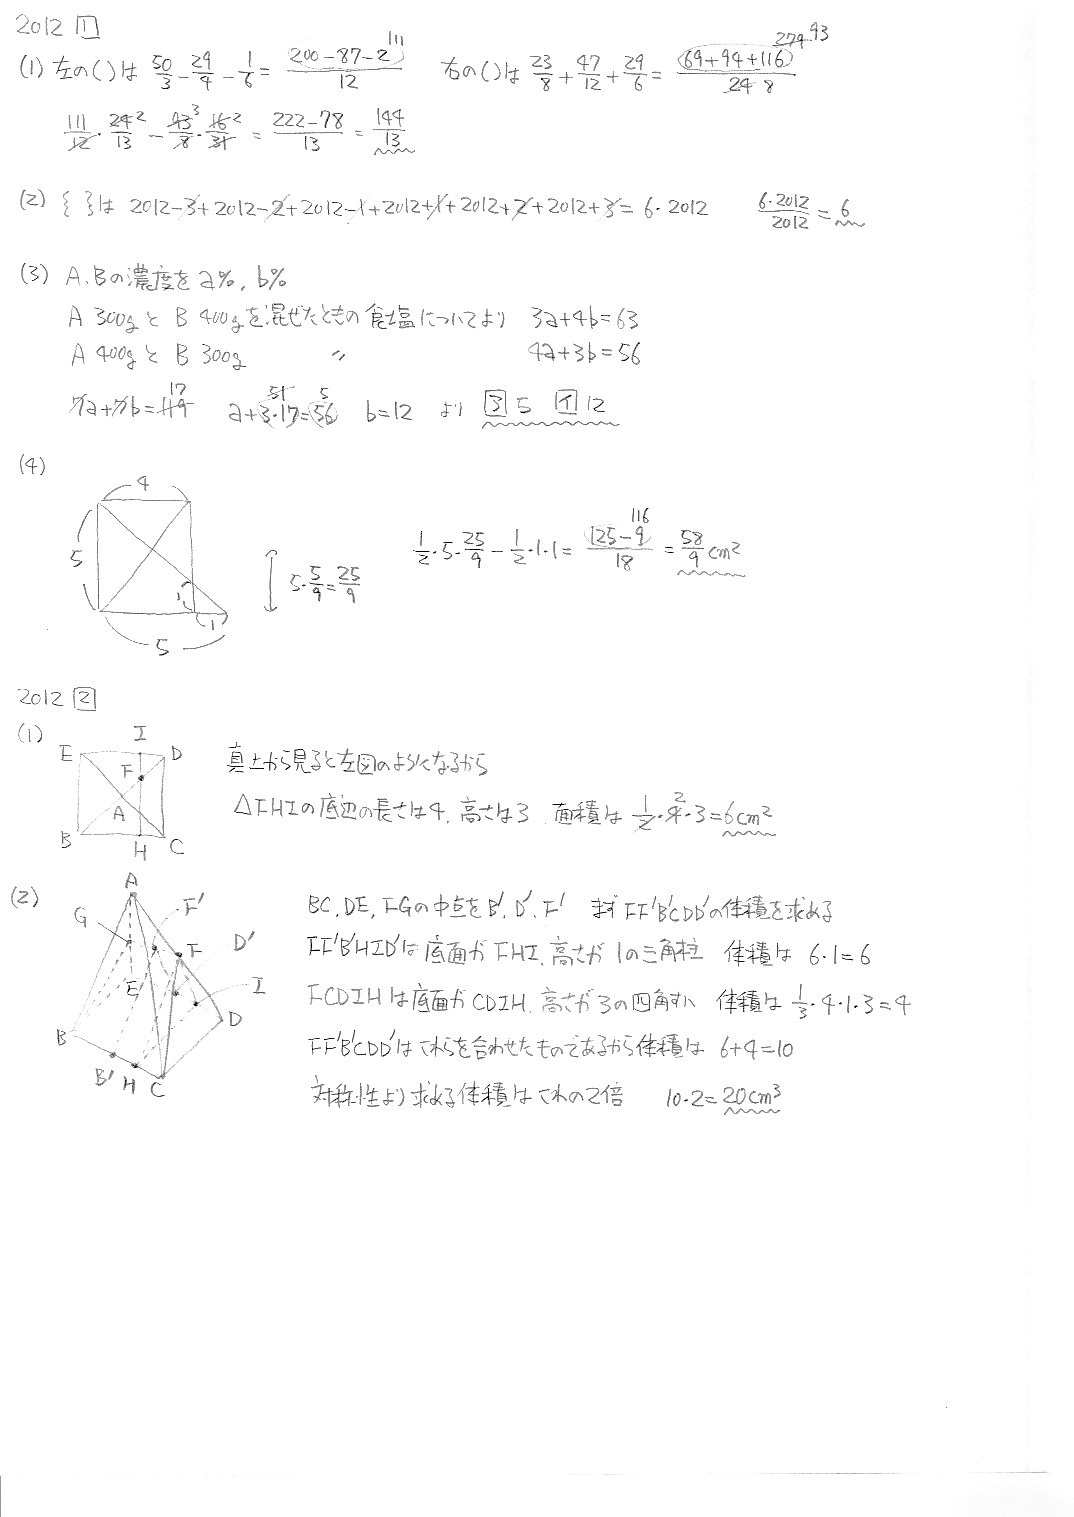 2012 [1]
(1) 左の( )は 50/3 - 29/4 - 1/6 = (200-87-2)/12 111 右の( )は 23/8 + 47/12 + 29/6 = (69+94+116)/24 279 93 8
111/12・24/13 2 - 93/8 3・16/31 2 = (222-78)/13 = 144/13
(2) { }は 2012-3+2012-2+2012-1+2012+1+2012+2+2012+3=6・2012 6・2012/2012=6
(3) A,Bの濃度をa%, b%
A 300gとB 400gを混ぜたときの食塩についてより 3a+4b=63
A 400gとB 300g 〃 4a+3b=56
7a+7b=119 17 a+3・17=56 51 5 b=12 より [ウ]5 [イ]12
(4)
4
5
5
1
1
5・5/9=25/9
1/2・5・25/9 - 1/2・1・1 = (125-9)/18 116 = 58/9 cm²
2012 [2]
(1)
E I D
F
A
B H C
真上から見ると左図のようになるから
△FHIの底辺の長さは4, 高さは3 面積は 1/2・4・3=6cm² 2
(2)
A
G F'
F D'
E I
D
B
B' H C
BC, DE, FGの中点をB', D', F' まずFF'B'CDD'の体積を求める
FF'B'HID'は底面がFHI, 高さが1の三角柱 体積は 6・1=6
FCDIHは底面がCDIH, 高さが3の四角すい 体積は 1/3・4・1・3=4
FF'B'CDD'はこれらを合わせたものであるから体積は 6+4=10
対称性より求める体積はこれの2倍 10・2=20cm³